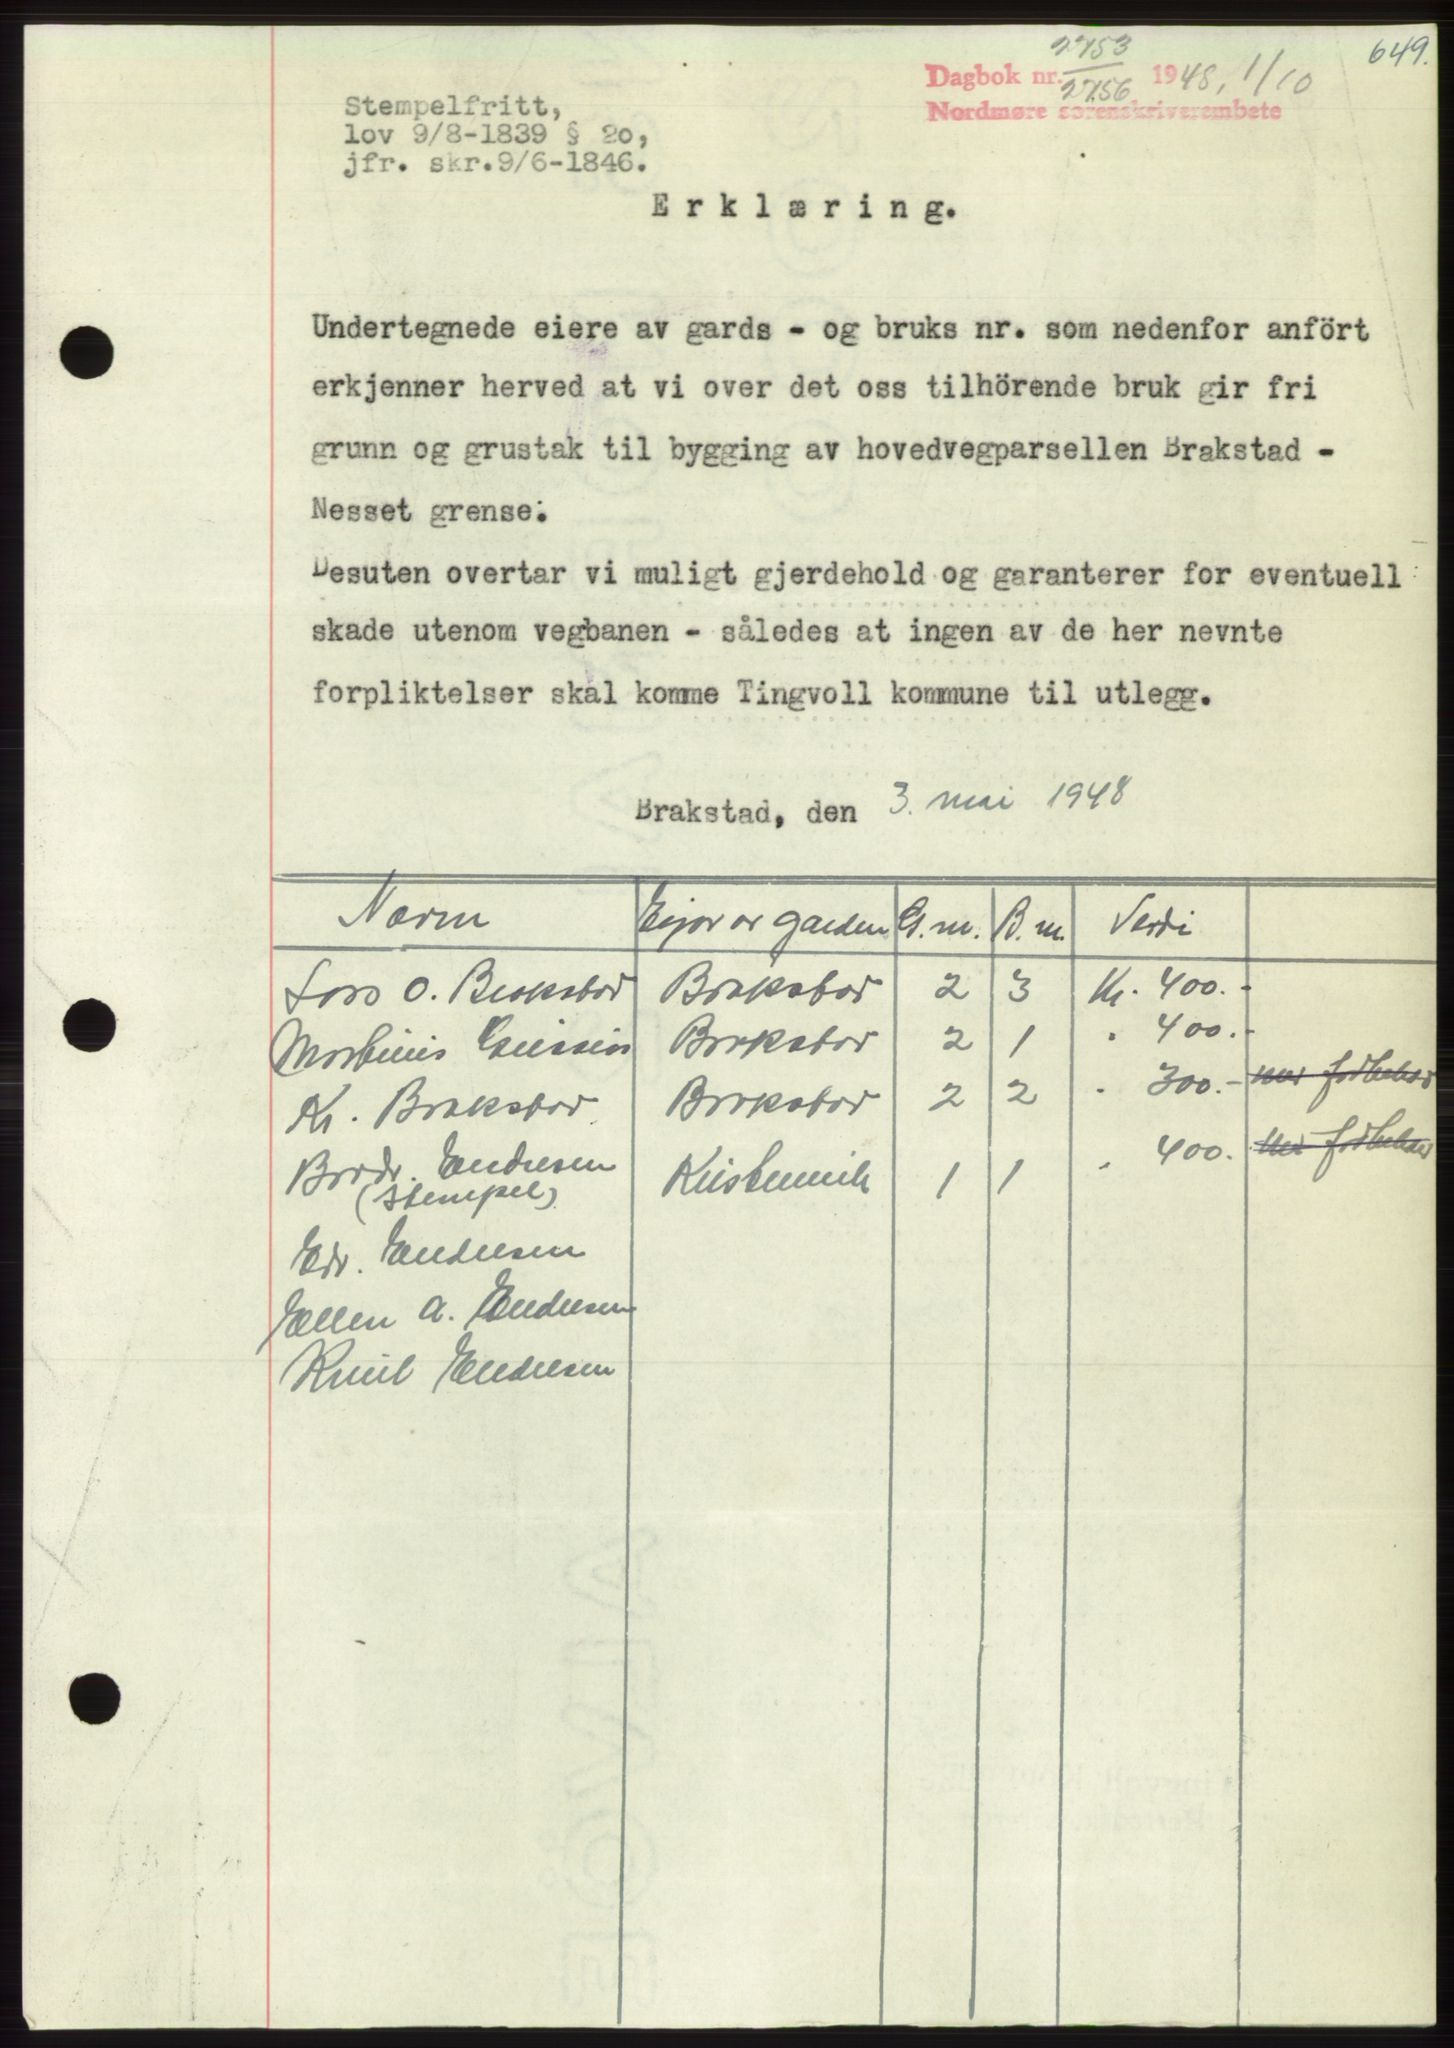 649.
2753
Dagbok nr. 2756 1948, 1/10
Nordmøre sorenskriverembete
Stempelfritt,
lov 9/8-1839 § 20,
jfr. skr.9/6-1846.
Erklæring.
Undertegnede eiere av gards - og bruks nr. som nedenfor anfört
erkjenner herved at vi over det oss tilhörende bruk gir fri
grunn og grustak til bygging av hovedvegparsellen Brakstad -
Nesset grense.
Desuten overtar vi muligt gjerdehold og garanterer for eventuell
skade utenom vegbanen - således at ingen av de her nevnte
forpliktelser skal komme Tingvoll kommune til utlegg.
Brakstad, den 3. mai 1948
Navn Eijar av garden G.nr. B.nr. Verdi
Lars O. Brakstad Brakstad 2 3 Kr. 400.-
Brakstad 2 1 " 400.-
Kr. Brakstad Brakstad 2 2 " 300.- med forbehold
Brdr. Endresen 1 1 " 400. med forbehold
(Stempel)
Edv. Endresen
Ellen A. Endresen
Knut Endresen